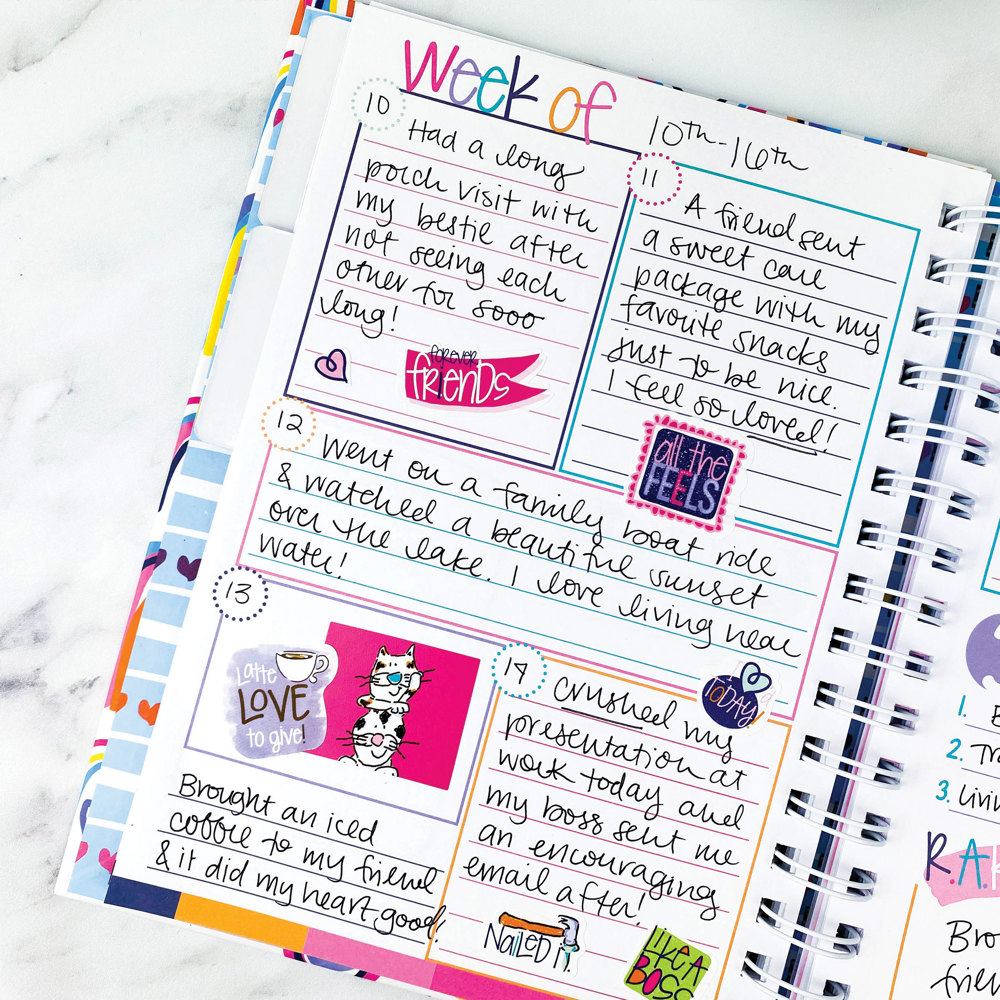 Week of 10th-16th
10
Had a long
porch visit with
my bestie after
not seeing each
other for sooo
long!
forever
friends
11
A friend sent
a sweet care
package with my
favorite snacks
just to be nice.
I feel so loved!
all the
FEELS
12
Went on a family boat ride
& watched a beautiful sunset
over the lake. I love living near
water!
13
Latte
LOVE
to give!
Brought an iced
coffee to my friend
& it did my heart good!
14
TODAY
Crushed my
presentation at
work today and
my boss sent me
an encouraging
email after!
NAILED it.
LIKE A
BOSS
1.
2.
3. Livin
R.A.
Bro
frien